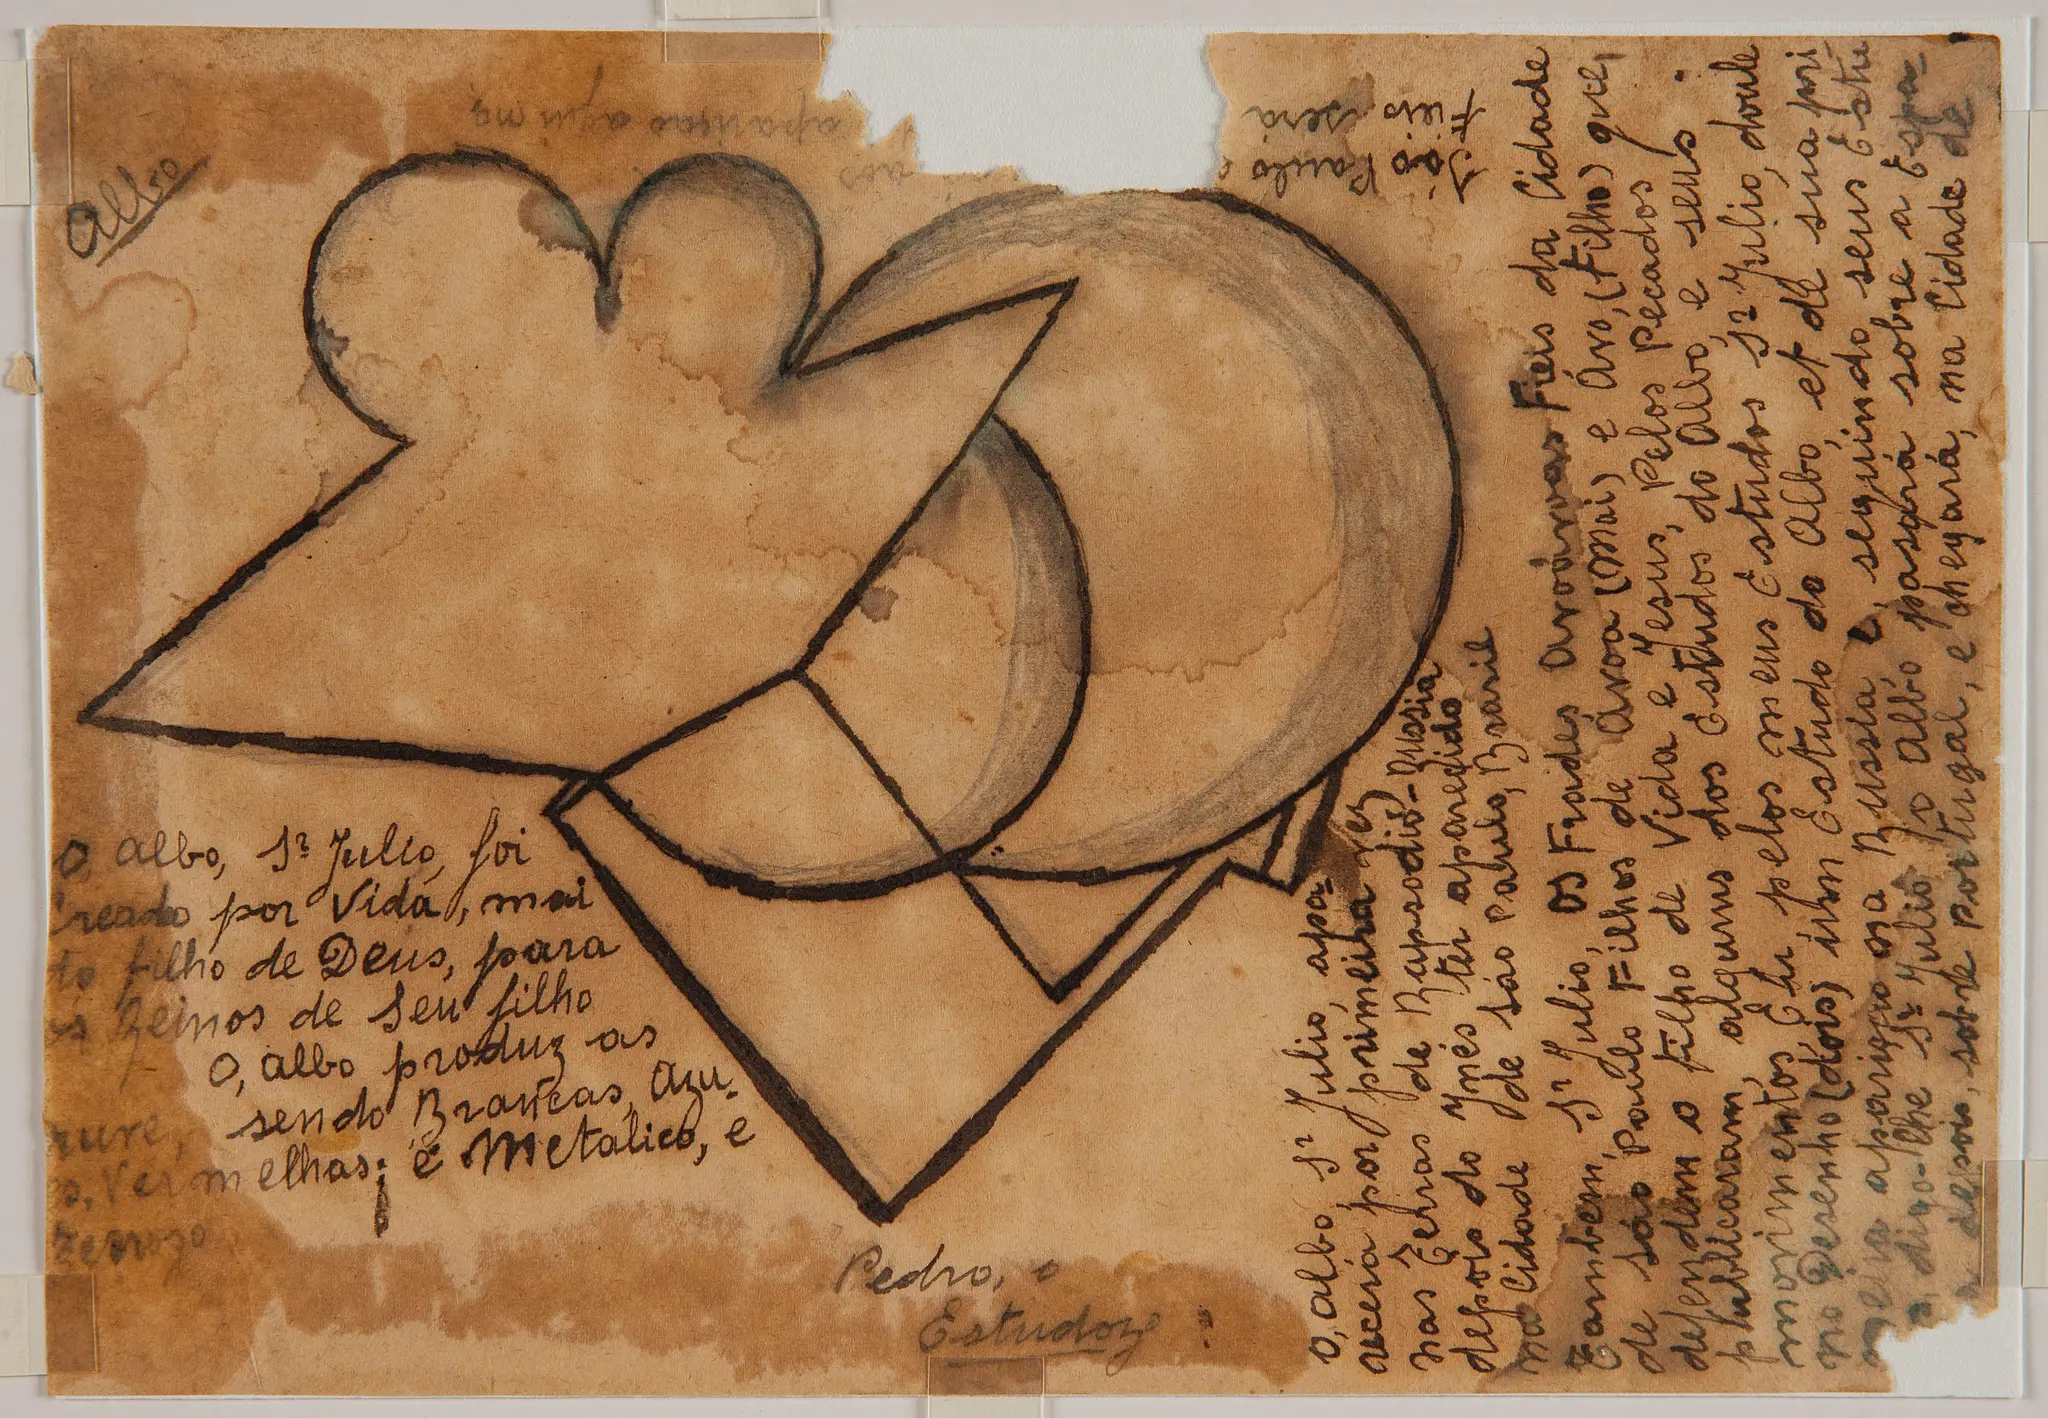 Albo
apanicas
São Paulo
será
Fieis
O, Albo, Sr Julio, foi
Creado por Vida, mai
to filho de Deus, para
Reinos de seu filho
O, Albo produz as
sendo Brancas, Azu-
s, Vermelhas; e Metalico, e
Pedro, o
Estudoze
O, Albo Sr Julio, apa-
recerá por primeira vez
nas Terras de Rapsodio-Russia
depois do Ynés ter aparecido
na Cidade de São Paulo, Brazil
Tambem, Sr Julio, os Frades Fieis da Cidade
de São Paulo Filhos de Ávoa (Mai) e Ávo, (Filho) que,
defendem o Filho de Vida e Jesus, Pelos Pecados
publicaram, alguns dos Estudos do Albo, e seus
movimentos, Eu pelos meus Estudos Sr Julio, doule
no Desenho (dois) um Estudo do Albo, et de sua pri-
meira aparição na Russia e, seguindo seus Estu
digo-lhe Sr Julio o Albo pasará sobre a Espa-
depois, sobre Portugal, e chegará, na Cidade de